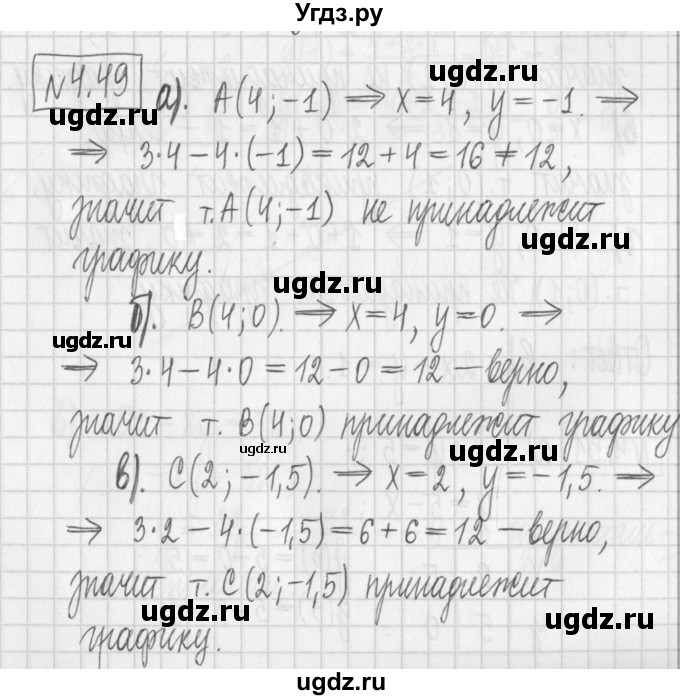 Угдз.ру
№4.49 а). A(4;-1) ⟹ x=4, y=-1. ⟹
⟹ 3·4-4·(-1)=12+4=16≠12,
значит т. A(4;-1) не принадлежит
графику.
б). B(4;0). ⟹ x=4, y=0. ⟹
⟹ 3·4-4·0=12-0=12 – верно,
значит т. B(4;0) принадлежит графику
в). C(2;-1,5). ⟹ x=2, y=-1,5. ⟹
⟹ 3·2-4·(-1,5)=6+6=12 – верно,
значит т. C(2;-1,5) принадлежит
графику.
ugdz.ru
ugdz.ru
ugdz.ru
ugdz.ru
ugdz.ru
ugdz.ru
ugdz.ru
ugdz.ru
ugdz.ru
ugdz.ru
ugdz.ru
ugdz.ru
ugdz.ru